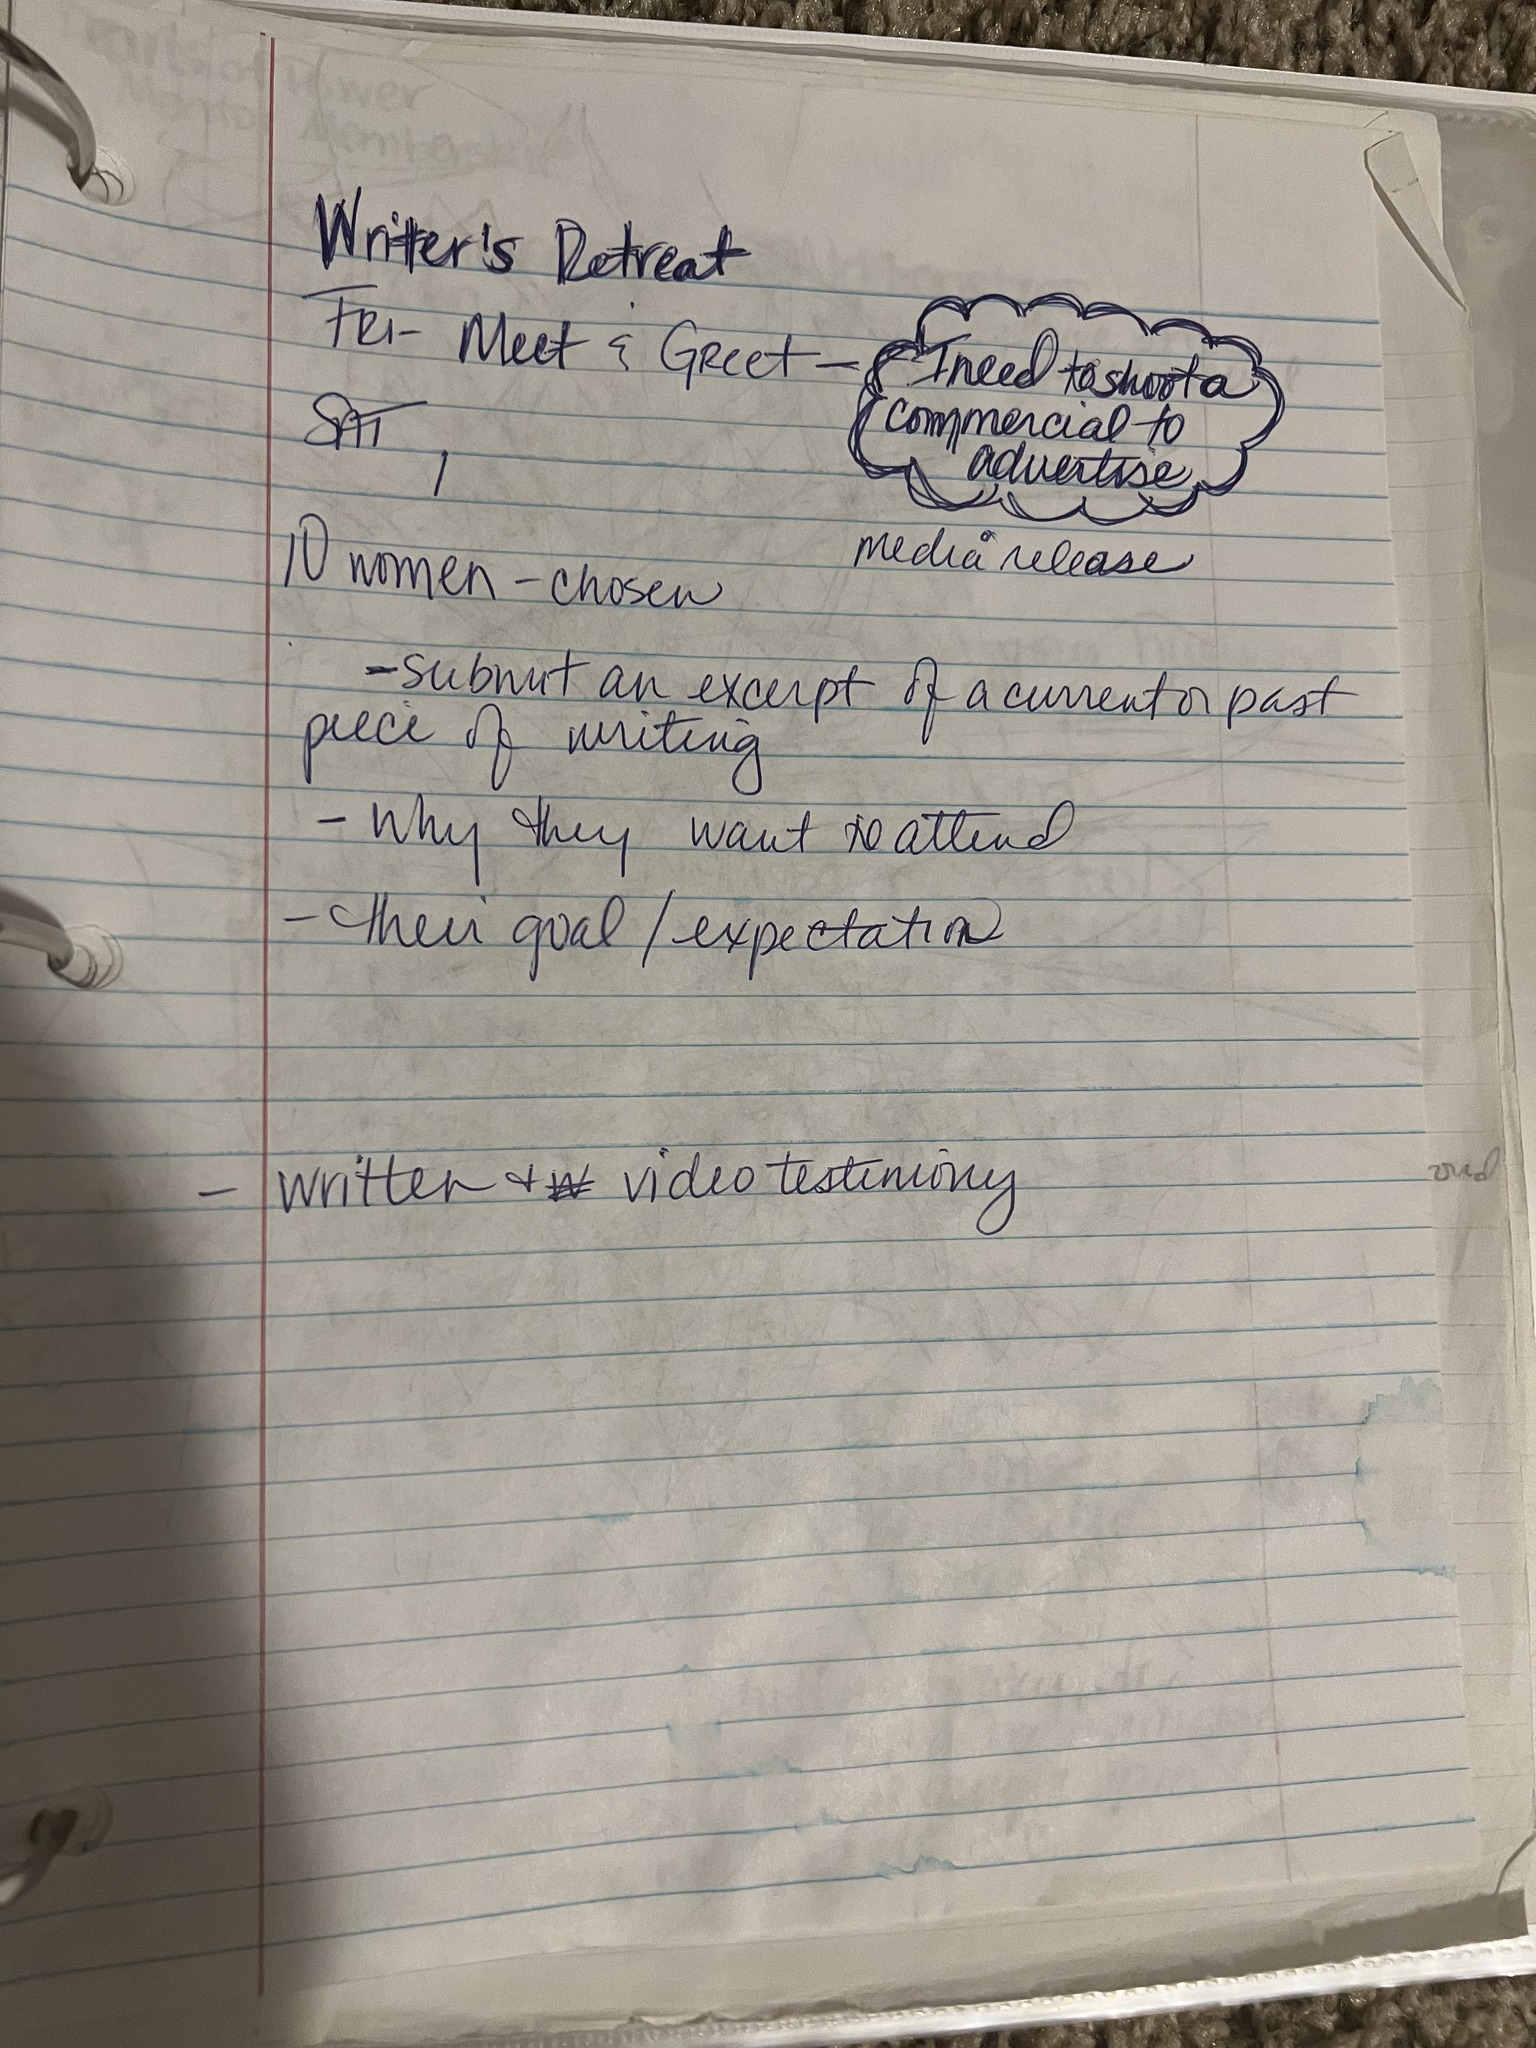 Writer's Retreat
FRI- Meet & Greet -
I need to shoot a
commercial to
advertise
SAT
media release
10 women - chosen
- submit an excerpt of a current or past
piece of writing
- Why they want to attend
- their goal / expectation
- written + video testimony